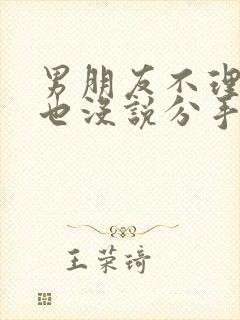 男朋友不理
也没説分手
王荣琦